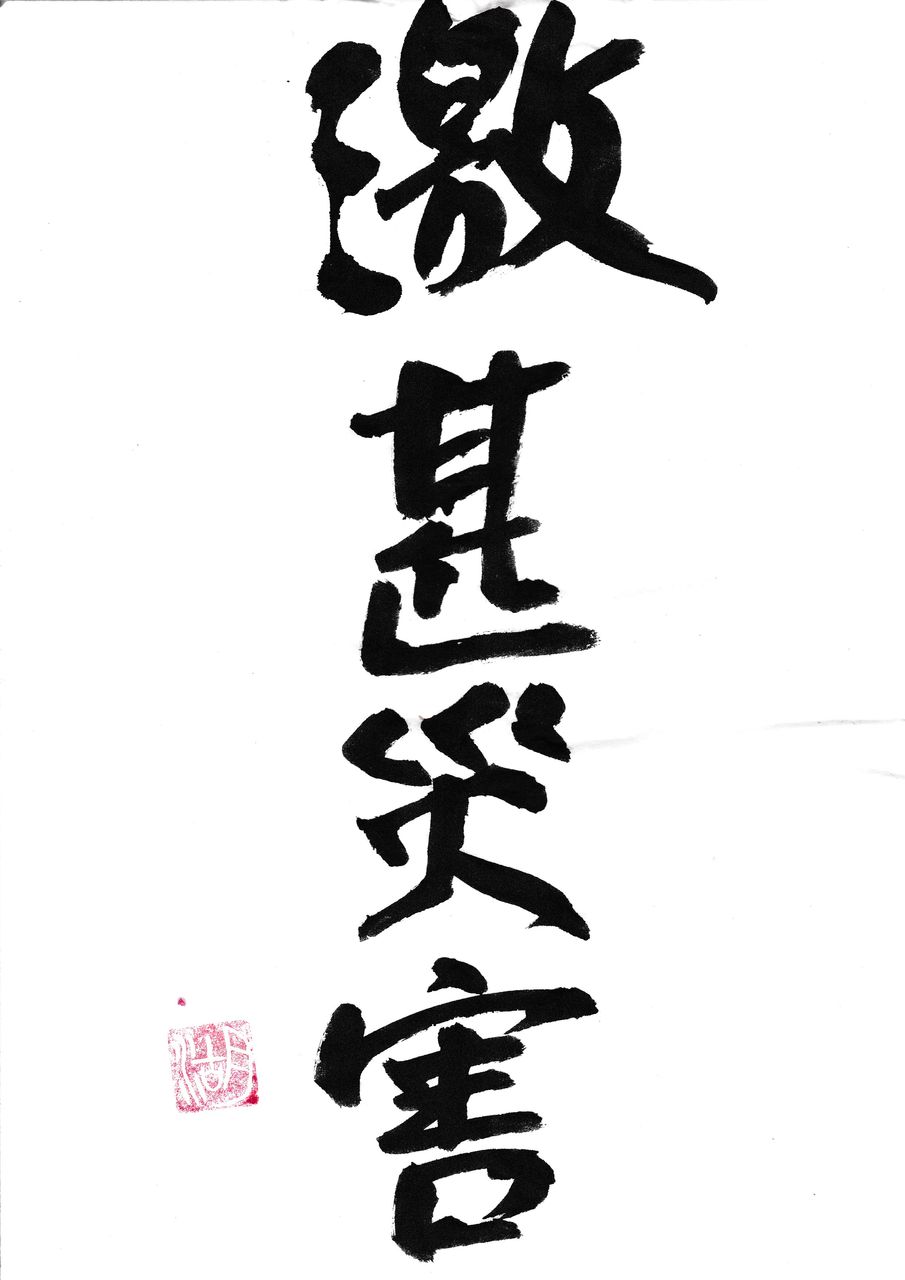 激甚災害
湖